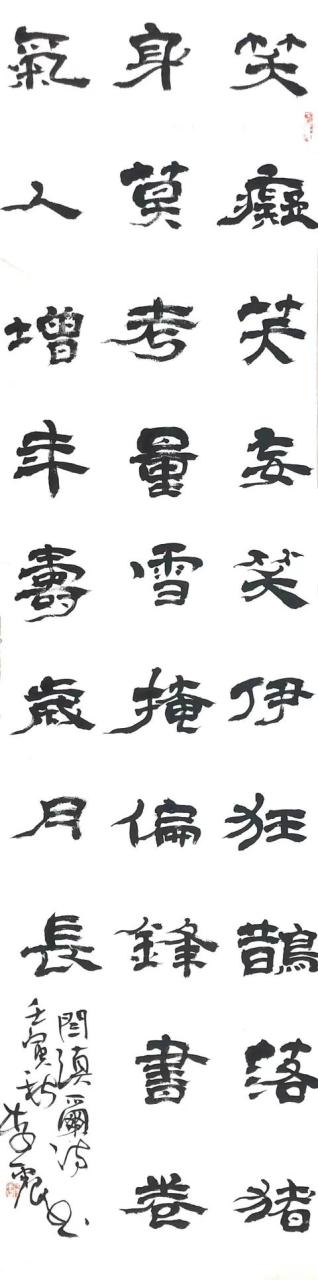 笑癡笑妄笑伊狂鵲落猪
身莫考量雪掩偏鋒書卷
氣人增年壽歲月長
爾詩
壬寅秋李震书